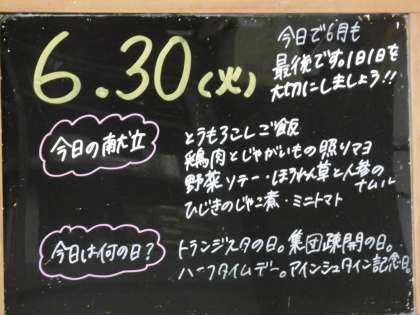 6.30(火)
今日で6月も
最後です。1日1日を
大切にしましょう!!
今日の献立
とうもろこしご飯
鶏肉とじゃがいもの照りマヨ
野菜ソテー・ほうれん草と人参の
ナムル
ひじきのじゃこ煮・ミニトマト
今日は何の日?
トランジスタの日。集団疎開の日。
ハーフタイムデー。アインシュタイン記念日